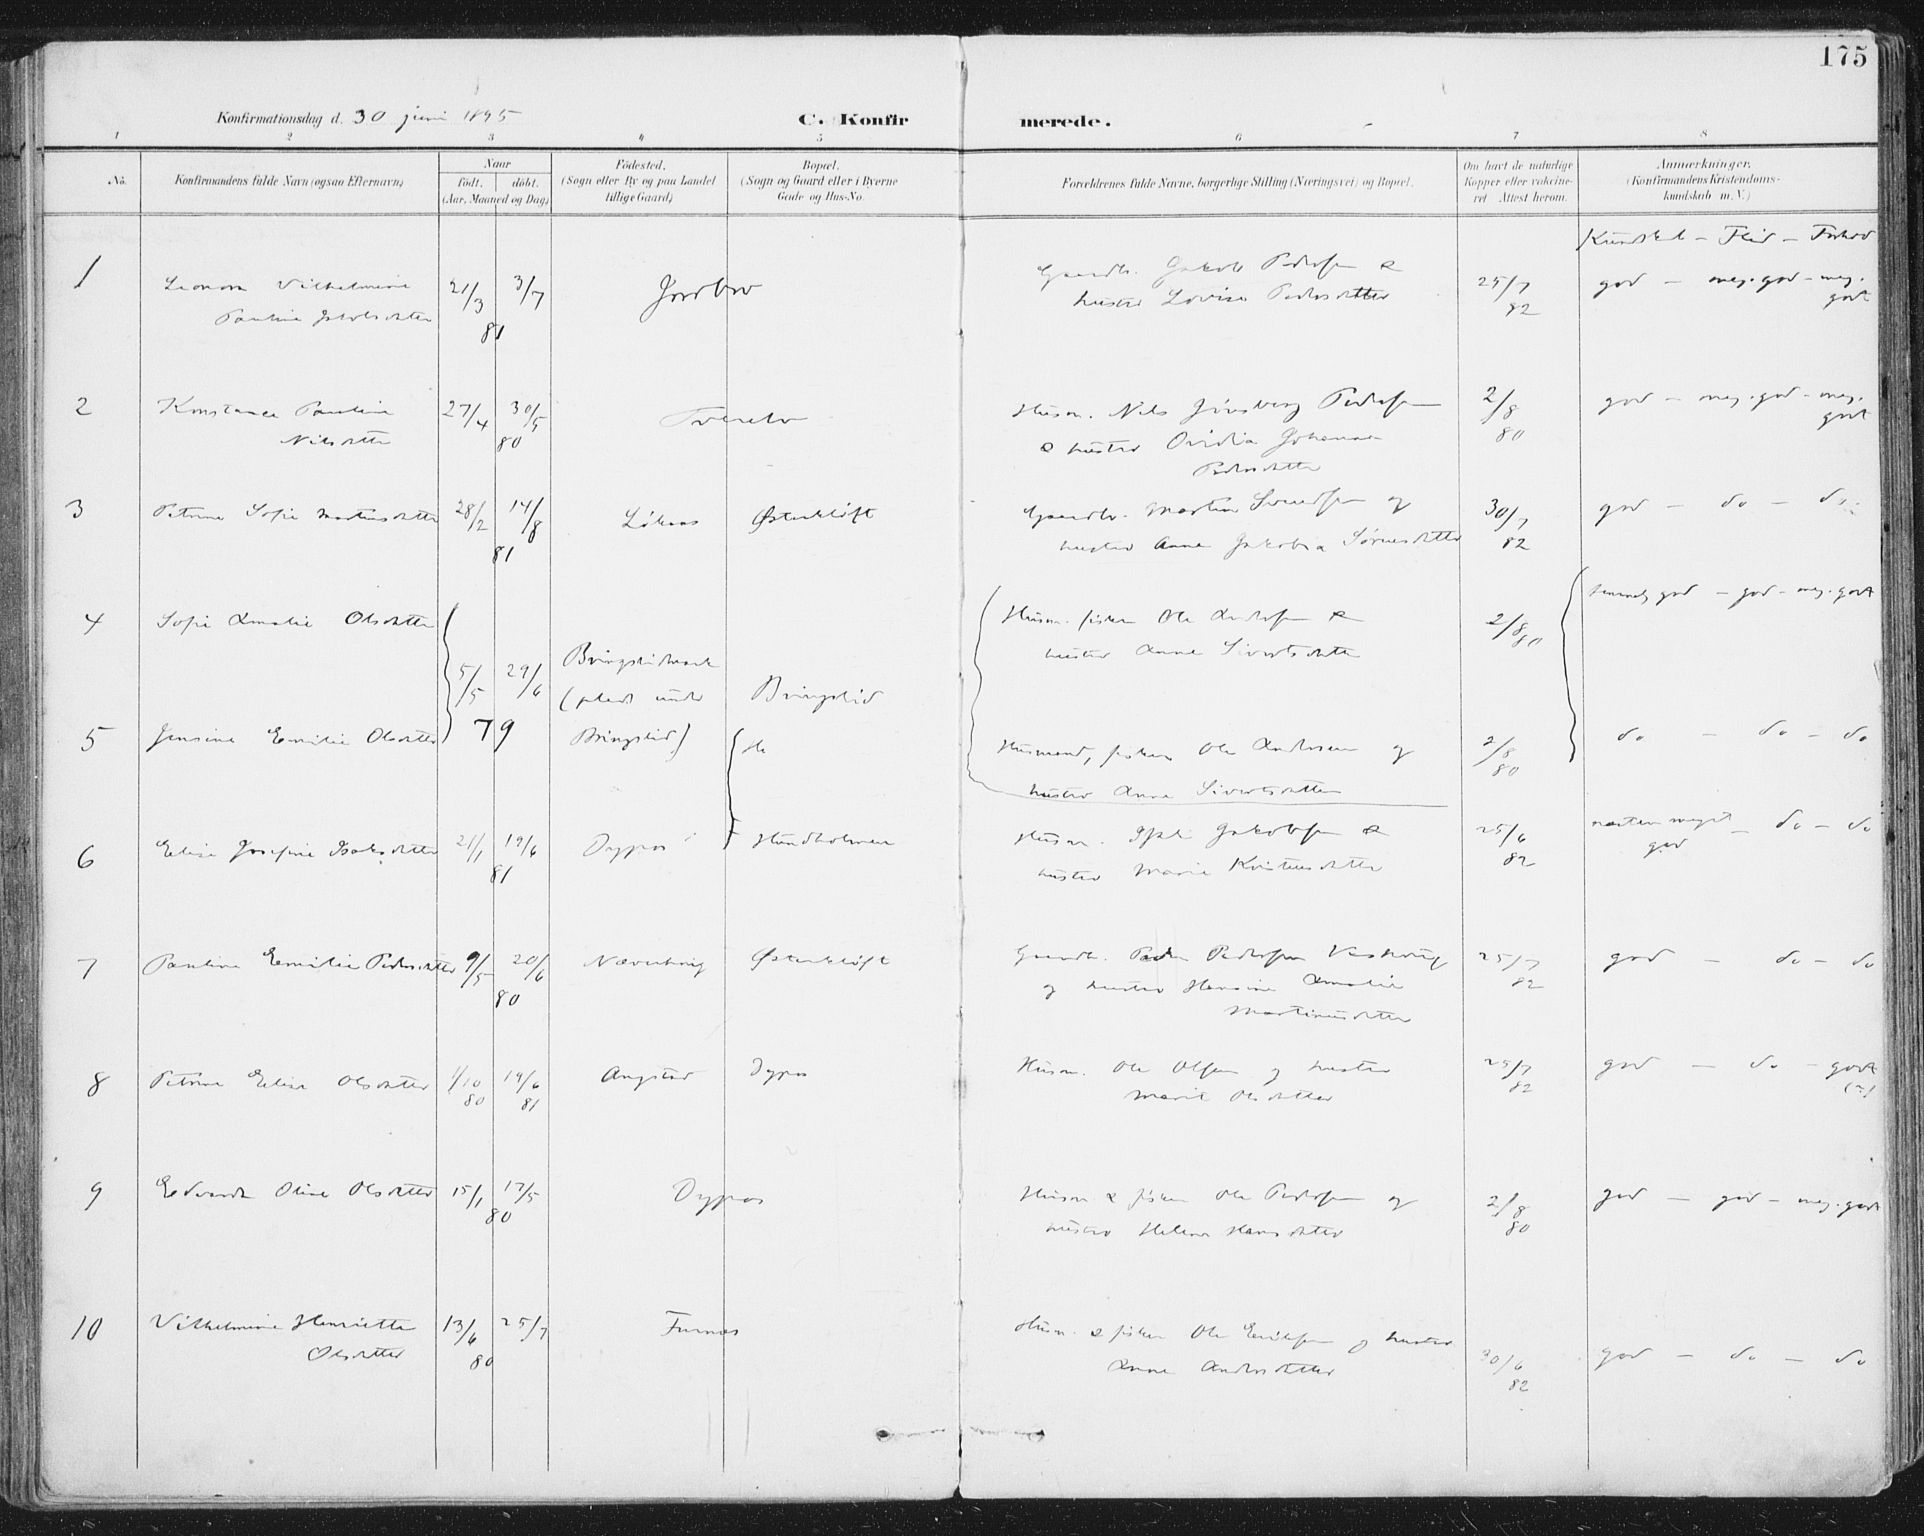 175
Konfirmationsdag d. 30 juni 1895
C. Konfirmerede.
1 2 3 4 5 6 7 8
No.
Konfirmandens fulde Navn (ogsaa Efternavn)
Naar
født. døbt.
(Aar, Maaned og Dag)
Fødested.
(Sogn eller By og paa Landet
tillige Gaard)
Bopæl.
(Sogn og Gaard eller i Byerne
Gade og Hus-No.
Forældrenes fulde Navne, borgerlige Stilling (Næringsvei) og Bopæl.
Om havt de naturlige
Kopper eller vakcine-
ret Attest herom.
Anmærkninger.
(Konfirmandens Kristendoms-
kundskab m. V.)
Kundskab - Flid - Forhold
1 Leonora Vilhelmine 21/3 3/7 Gaardbr. Jakob Pedersen & 25/7 god - meg. god - meg.
Pauline Jakobsdatter 81 hustru Lovise Pedersdatter 82 godt
2 Konstance Pauline 27/4 30/5 Husm. Nils Pedersen 2/8 god - meg. god - meg.
Nilsdatter 80 & hustru Ovidia Johanna 80 godt
Pedersdatter
3 Petrine Sofie Martinsdatter 28/2 14/8 Løkaas Østerkløft Gaardbr. Martin Svendsen og 30/7 god - do - do
81 hustru Anne Jakobia Sørensdatter 82
4 Sofie Amalie Olsdatter Husm. fisker Ole Andersen & 2/8 80 temmelig god - god - meg. godt
hustru Anne Sivertsdatter
5/5 29/6 Bringslimark
(plads under Bringslid
5 Jensine Emilie Olsdatter 79 Bringslid) Husmand, fisker Ole Andersen og 2/8 do - do - do
hustru Anne Sivertsdatter 80
6 Elise Josefine Isaksdatter 21/1 19/6 Dypos Hundholmen Husm. Jakobsen & 25/6 næsten meget - do - do
81 hustru Marie Kristensdatter 82 god
7 Pauline Emilie Pedersdatter 9/5 20/6 Næverhaug Østerkløft Gaardb. Peder Pedersen og 25/7 god - do - do
80 hustru Hansine Amalie 82
Martinusdatter
8 Petrine Elise Olsdatter 1/10 19/6 Angstad Dypos Husm. Ole Olsen og hustru 25/7 god - do - godt
80 81 Marit Olsdatter 82
9 Edvarda Oline Olsdatter 15/1 17/5 Dypos Husm & fisker Ole Pedersen og 2/8 god - god - meg. godt
80 hustru Helene Hansdatter 80
10 Vilhelmine Henriette 13/6 25/7 Furnes Husm. & fisker Ole Eriksen og hustru
Olsdatter 80 Anne Andersdatter 30/6 god - do - do
82